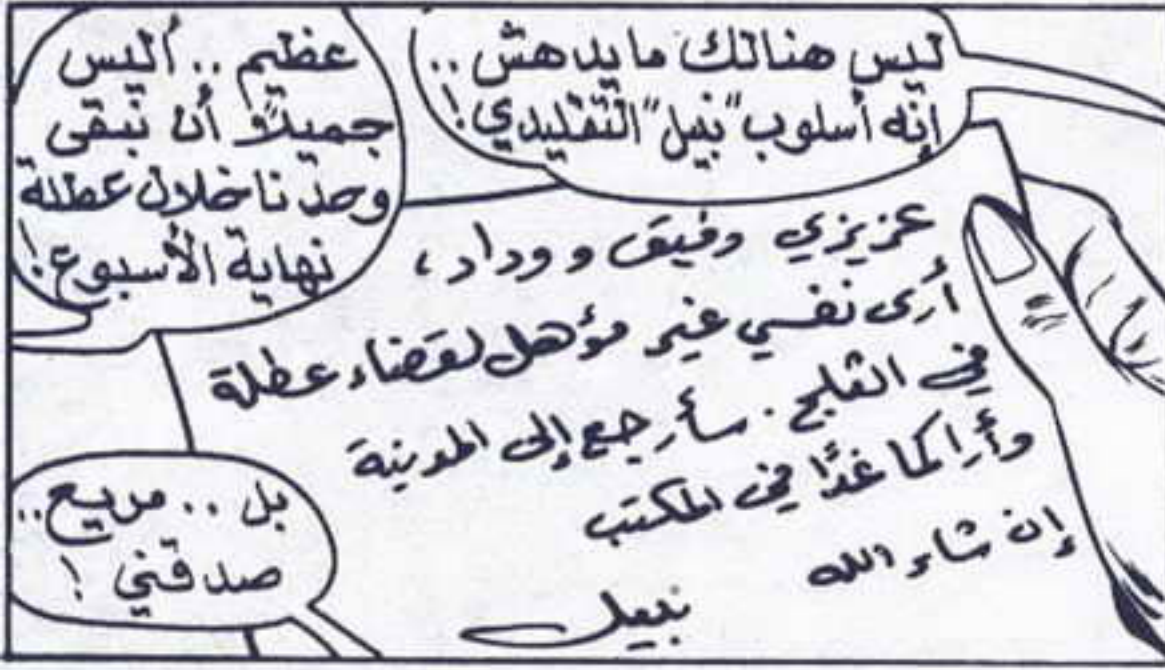 ليس هنالك ما يدهش ..
إنه أسلوب "نبيل" التقليدي!
عظيم .. أليس
جميلاً أن نبقى
وحدنا خلال عطلة
نهاية الأسبوع!
عزيزي رفيق و وداد،
أرى نفسي غير مؤهل لقضاء عطلة
في الثلج. سأرجع إلى المدينة
وأراكما غدًا في المكتب
إن شاء الله
نبيل
بل .. مريع ..
صدقني !